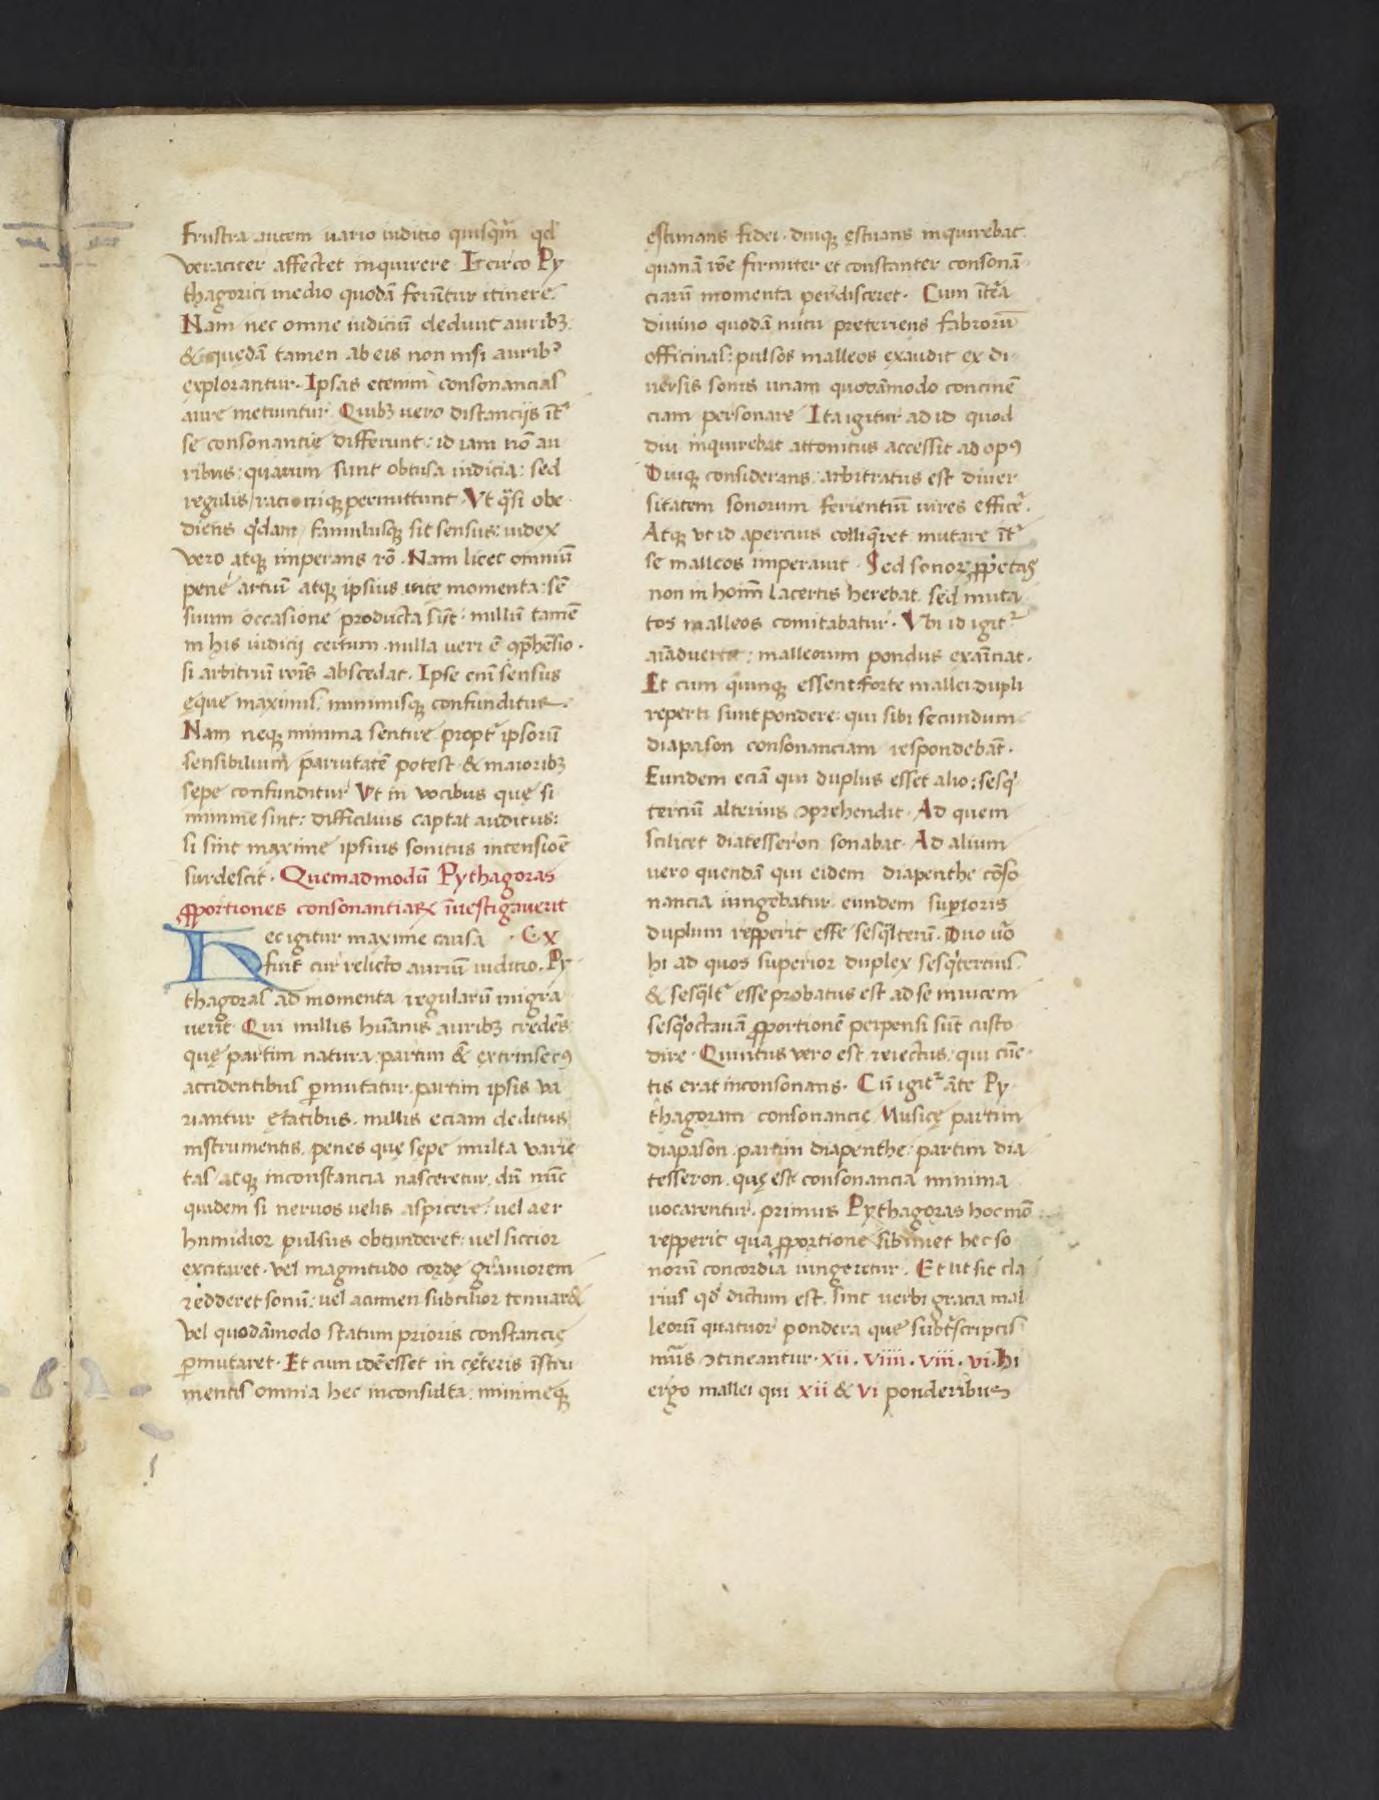 Frustra autem uario iuditio quisq̃m qd'
veraciter affectet inquirere. Iccirco Py
thagorici medio quodã ferũtur itinere.
Nam nec omne iudiciũ dedunt aurib3.
& quędã tamen ab eis non nisi aurib9
explorantur. Ipsas etenim consonancias
aure metiuntur. Quib3 uero distanciis ĩt'
se consonantię differunt: id iam nõ au
ribus: quarum sunt obtusa iudicia: sed
regulis/ racioniq3 permittunt. Vt q̃si obe
diens q'dam famulusq3 sit sensus: iudex
vero atq3 imperans rõ. Nam licet omniũ
pene artiũ atq3 ipsius uitę momenta: sẽ
suum occasione producta sĩt: nullũ tamẽ
in his iudicij certum nulla veri ẽ ɔp̃hẽsio.
si arbitriũ rõis abscedat. Ipse eni sensus
ęque maximis, minimisq3 confunditur.
Nam neq3 minima sentire propt' ipsorũ
sensibilium paruitatẽ potest & maiorib3
sepe confunditur Vt in vocibus quę si
minime sint: difficilius captat auditus:
si sint maxime ipsius sonitus intensioẽ
surdescit. Quemadmodũ Pythagoras
ꝓportiones consonantiaꝝ ĩuestigauerit
Hec igitur maxime causa . C x
fuit cur relicto auriũ iuditio. Py
thagoras ad momenta regularũ migra
uerit Qui nullis hũanis aurib3 credẽs
quę partim natura partim & extrinsec9
accidentibus ꝑmutatur. partim ipsis va
riantur ętatibus. nullis eciam deditus
instrumentis, penes quę sępe multa varie
tas atq3 inconstancia nasceretur. dũ nũc
quidem si neruos uelis aspicere: uel aer
humidior pulsus obtunderet: uel siccior
excitaret. vel magnitudo cordę grauiorem
redderet sonũ: uel acumen subtilior tenuar&
vel quodãmodo statum prioris constancię
ꝑmutaret. Et cum idẽ esset in cęteris ĩstru
mentis omnia hec inconsulta: minimeq3
ęstimans fidei. diuq3 ęstuans inquirebat
quanã rõe firmiter et constanter consonã
ciarũ momenta perdisceret. Cum ĩt'ea
diuino quodã nutu preteriens fabrorũ
officinas: pulsos malleos exaudit ex di
uersis sonis unam quodãmodo concinẽ
ciam personare Ita igitur ad id quod
diu inquirebat attonitus accessit ad op9
Diuq3 considerans: arbitratus est diuer
sitatem sonorum ferientiũ uires effice'.
Atq3 vt id apertius colliq̃ret mutare ĩt'
se malleos imperauit. Sed sonoꝝ ꝓp'etas
non in hoĩm lacertis herebat. sed muta
tos malleos comitabatur. Vbi id igit'
aiãduertit: malleorum pondus exaĩnat.
Et cum quinq3 essent forte mallei dupli
reperti sunt pondere: qui sibi secundum
diapason consonanciam respondebãt.
Eundem eciã qui duplus esset alio: sesq'
terciũ alterius ɔprehendit. Ad quem
scilicet diatesseron sonabat. Ad alium
uero quendã qui eidem diapenthe cõso
nancia iungebatur eundem suꝑioris
duplum repperit esse sesq'lterũ. Duo ũo
hi ad quos superior duplex sesq'tercius
& sesq'lt' esse probatus est ad se inuicem
sesq'octauã ꝓportionẽ perpensi sũt custo
dire. Quintus vero est reiectus: qui cũc
tis erat inconsonans. Cũ igit' ãte Py
thagoram consonancię Musicę partim
diapason. partim diapenthe: partim dia
tesseron. quę est consonancia minima
uocarentur. primus Pythagoras hoc mõ
repperit qua ꝓportione sibimet hec so
norũ concordia iungeretur. Et ut sit cla
rius qd' dictum est. sint uerbi gracia mal
leorũ quatuor pondera que subt'scriptis
nũis ɔtineantur. xii. viiii. viii. vi. hi
ergo mallei qui xii & vi ponderibus